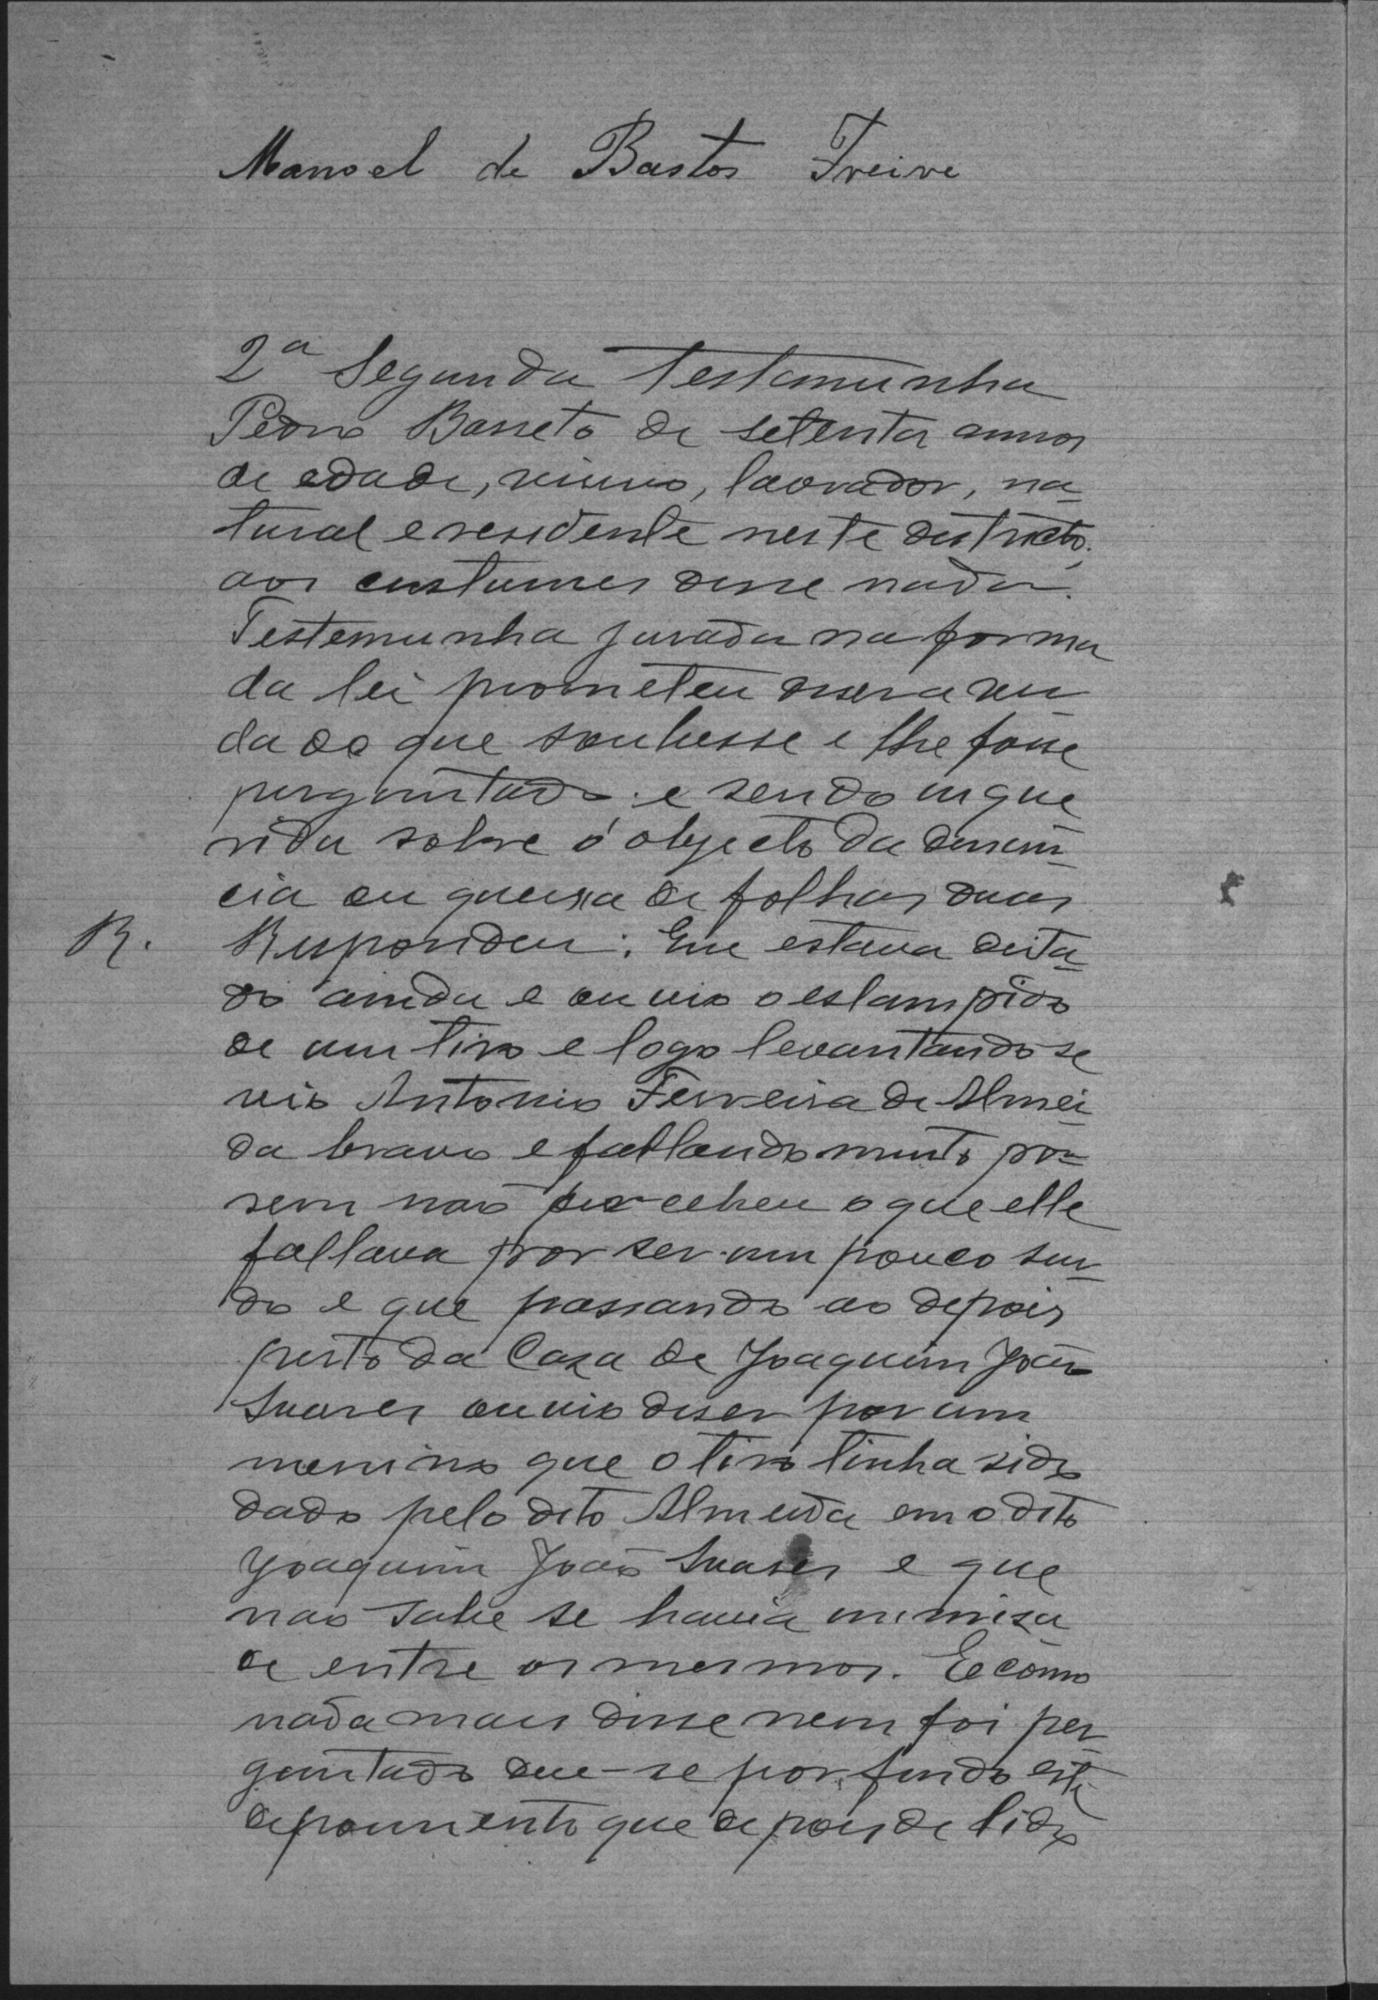 Manoel de Bastos Freire
2ª Segunda Testemunha
Pedro Barreto de setenta annos
de edade, viuvo, lavrador, na-
tural e residente neste districto,
aos custumes disse nada.
Testemunha jurada na forma
da lei prometeu dizer a ver
dade do que soubesse e lhe fosse
perguntado e sendo inque
rida sobre o objecto da denun-
cia ou queixa de folhas duas
R. Respondeu: Que estava deita-
do ainda e ouvio o estampido
de um tiro e logo levantando se
vio Antonio Ferreira de Almei-
da bravo e fallando muito po-
rem não percebeu o que elle
fallava por ser um pouco sur-
do e que passando ao depois
perto da Caza de Joaquim João
Suares ouvio diser por um
menino que o tiro tinha sido
dado pelo dito Almeida em o dito
Joaquim João Suares e que
não sabe se havia inimisa
de entre os mesmos. E como
nada mais disse nem foi per-
guntado deu-se por findo este
depoimento que depois de lido